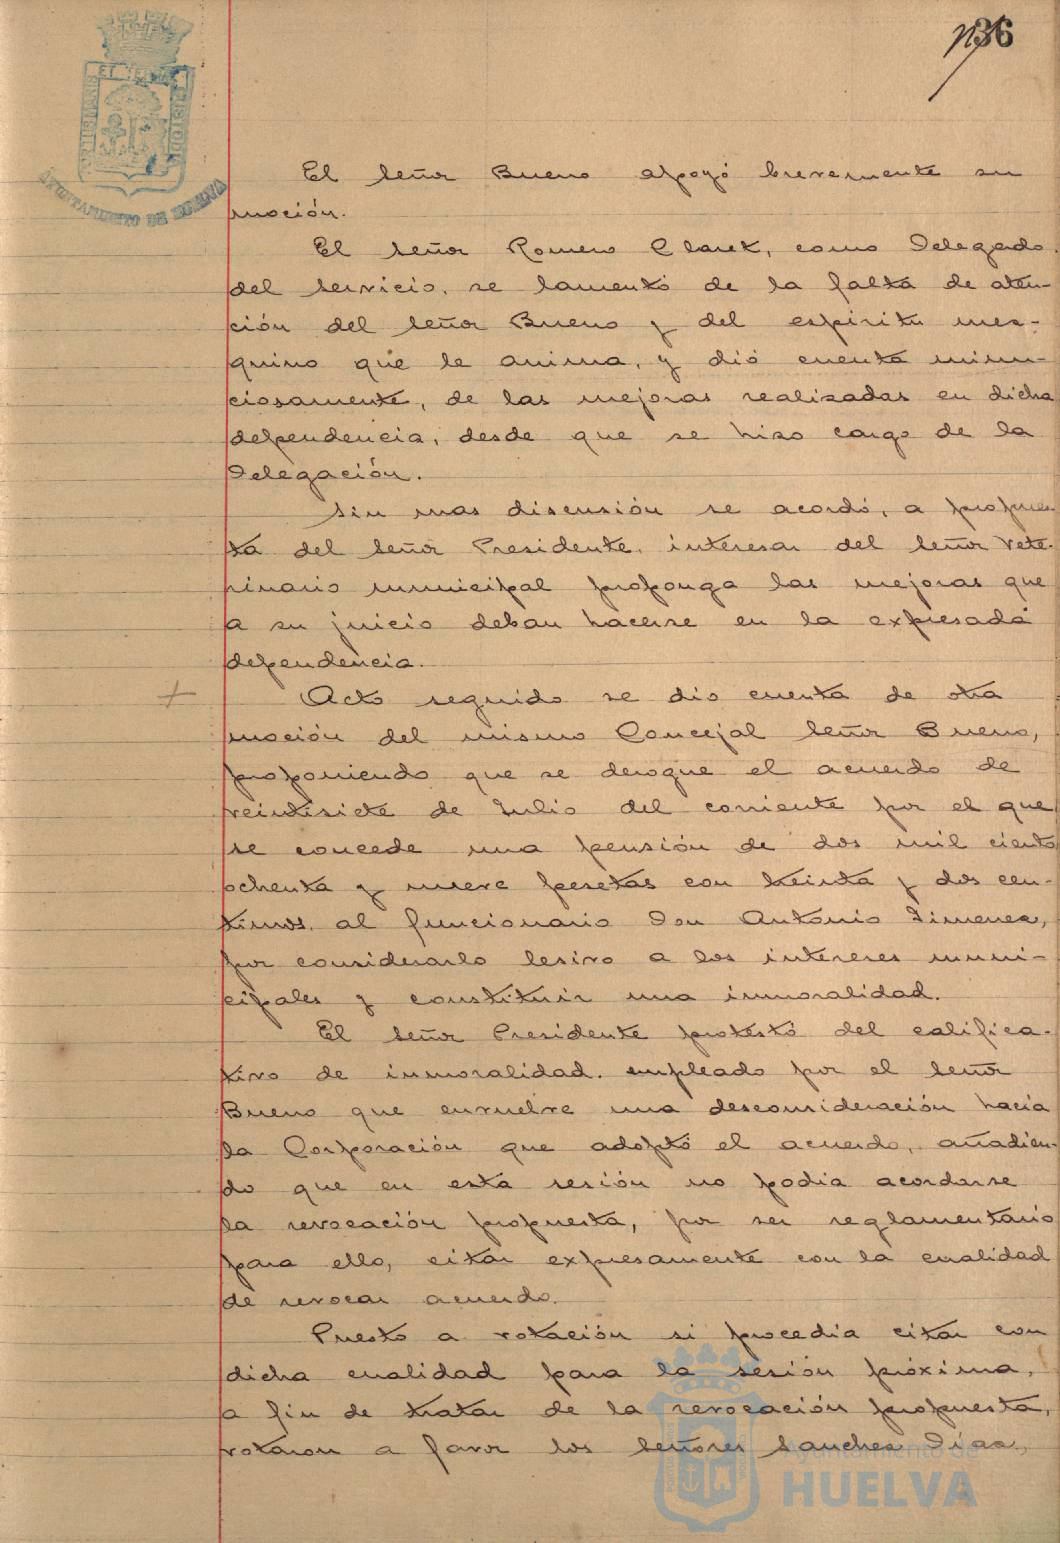 36
AYUNTAMIENTO DE HUELVA
El Señor Bueno apoyó brevemente su
moción.
El Señor Romero Clarck, como Delegado
del servicio, se lamentó de la falta de aten-
ción del Señor Bueno y del espiritu mez-
quino que le anima, y dió cuenta minu-
ciosamente, de las mejoras realizadas en dicha
dependencia, desde que se hizo cargo de la
Delegación.
Sin mas discusión se acordó, a propues-
ta del Señor Presidente, interesar del Señor Vete-
rinario municipal proponga las mejoras que
a su juicio deban hacerse en la expresada
dependencia.
Acto seguido se dio cuenta de otra
moción del mismo Concejal Señor Bueno,
proponiendo que se derogue el acuerdo de
veintisiete de Julio del corriente por el que
se concede una pensión de dos mil ciento
ochenta y nueve pesetas con treinta y dos cen-
timos, al funcionario Don Antonio Jimenez,
por considerarlo lesivo a los intereses muni-
cipales y constituir una inmoralidad.
El Señor Presidente protestó del califica-
tivo de inmoralidad, empleado por el Señor
Bueno que envuelve una desconsideración hacia
la Corporación que adoptó el acuerdo, añadien-
do que en esta sesión no podia acordarse
la revocación propuesta, por ser reglamentario
para ello, citar expresamente con la cualidad
de revocar acuerdo.
Puesto a votación si procedia citar con
dicha cualidad para la sesión próxima,
a fin de tratar de la revocación propuesta,
votaron a favor los Señores Sanchez Diaz,
Ayuntamiento de
HUELVA